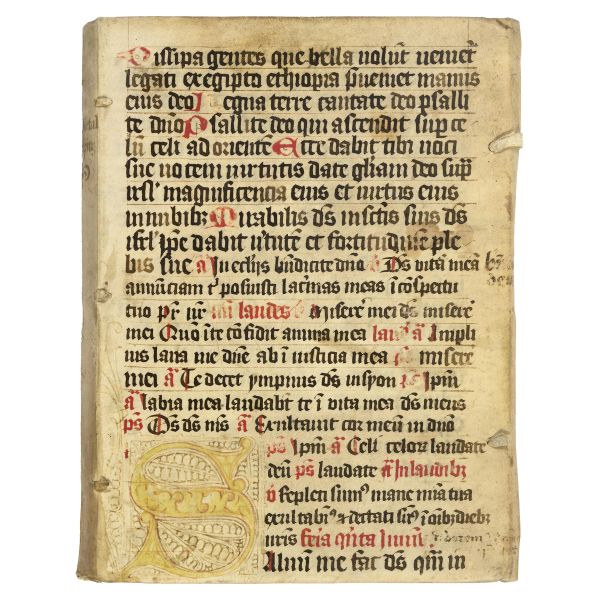 Dissipa gentes que bella volūt veniēt
legati ex egipto ethiopia p̄veniet manus
eius deo Regna terre cantate deo psalli
te dn̄o Psallite deo qui ascendit sup ce
lū celi ad orientē Ecce dabit voci
sue vocem virtutis date gl̄iam deo sup̄
isrl' magnificencia eius et virtus eius
in nubibꝫ Mirabilis ds̄ in sc̄tis suis ds̄
isrl' ip̄e dabit v̄tutē et fortitudinē ple
bis sue a̅ In eccl̄ijs bn̄dicite dn̄o v Ds̄ vitā meā
annunciavi t' posuisti lac̄mas meas ī cōspectu
tuo In laudes Miserē mei ds̄ miserē
mei Qm̄ ī te cōfidit anima mea a̅ Ampli
us lava me dn̄e ab ī iusticia mea ps̄ miserē
mei a̅ Te decet ympnus ds̄ in syon ps̄ ip̄m
a̅ labia mea laudabūt te ī vita mea ds̄ meus
ps̄ Ds̄ ds̄ ms̄ a̅ Exultavit cor meū in dn̄o
ps̄ ip̄m a̅ Celi celorꝫ laudate
deū ps̄ laudate a̅ In laudibꝫ
v Repleti sumꝰ mane mīa tua
exultabiꝰ ⁊ delectati sumꝰ ī oībꝫ diebꝫ
nr̄is feria qn̄ta
Salvum me fac ds̄ qm̄ in